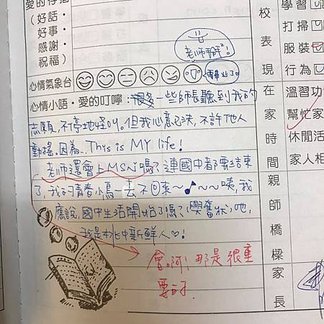 愛的存摺
（好話、
好事、
感謝、
祝福）
老師好!
心情氣象台
心情小語・愛的叮嚀：很多一些師長聽到我的
志願，不停地搖頭。但我心意已決，不許他人
動搖，因為，This is MY life!
老師還會上MSN嗎？連國中都要結束
了，我的青春小鳥一去不回來~♪~~唉，我
國中生活開始了嗎？(興奮狀)吧，
我是北中新鮮人♡!
會啊！那是很重
要的
校表現
在家時間
親師橋樑
家長
學習
打掃
服裝
行為
溫習功
幫忙家
休閒活
家人相